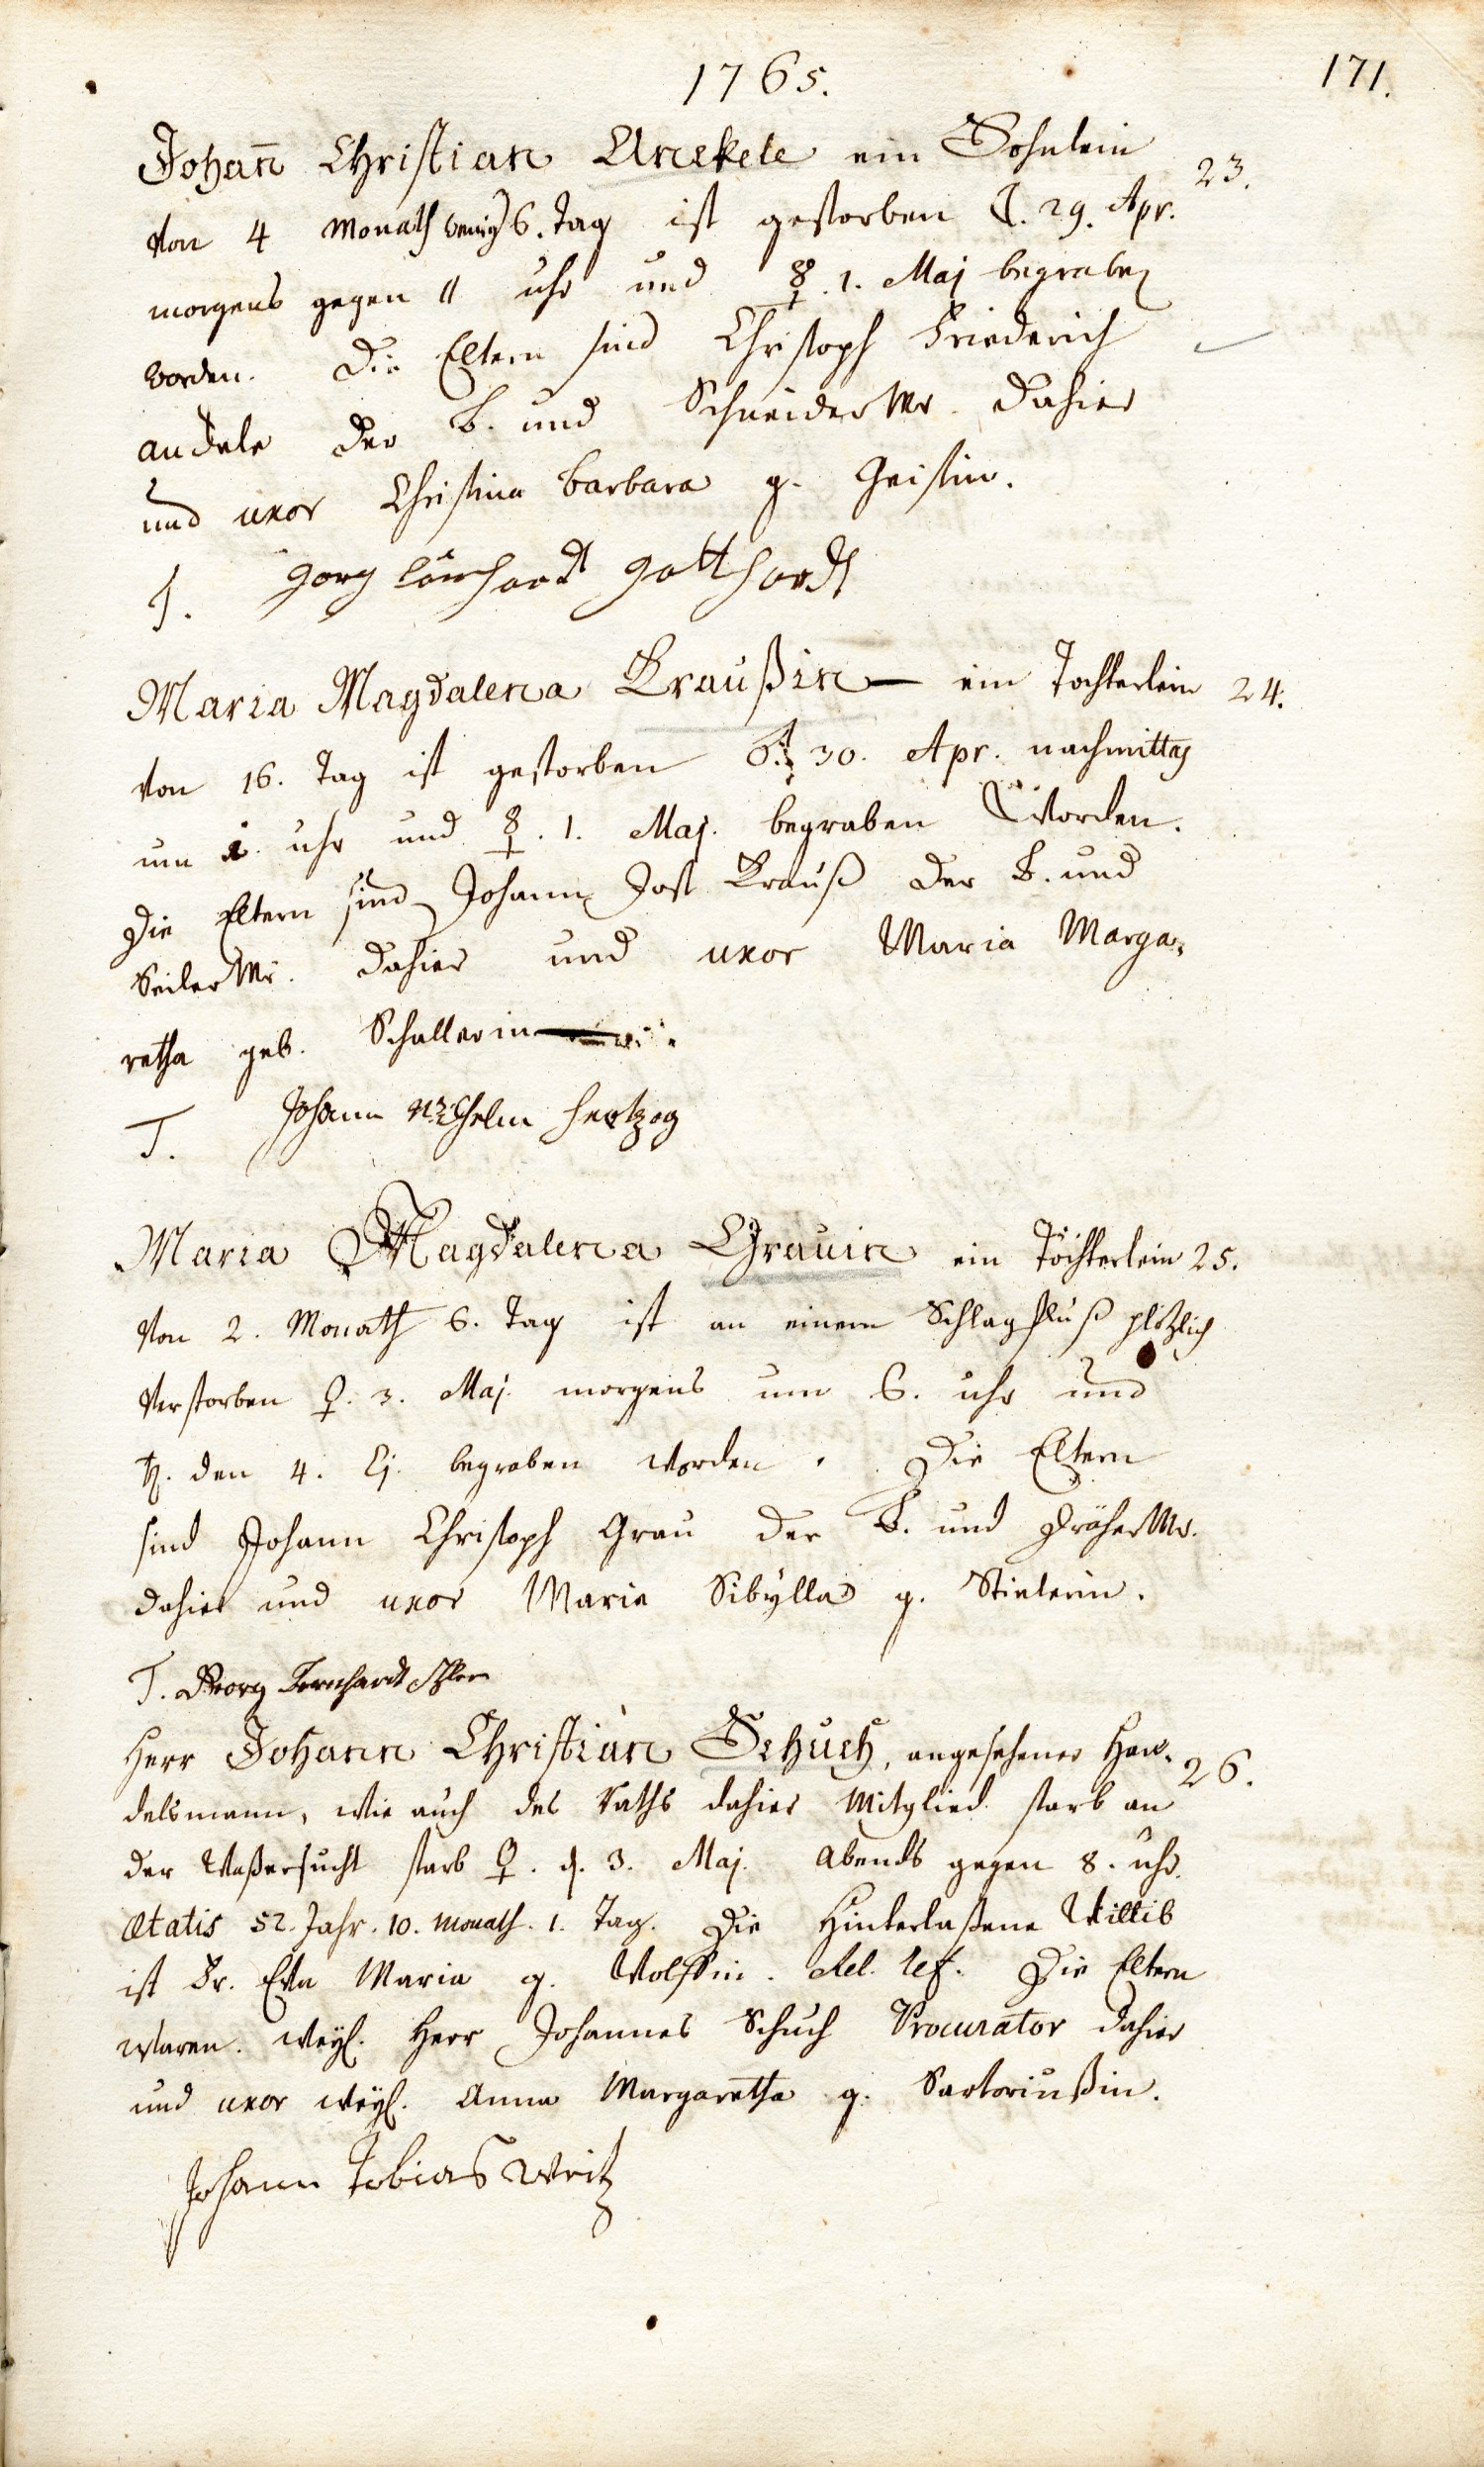 1765.
171.
Johan̄ Christian Andele ein Söhnlein
23.
von 4 Monath wenig 6. Tag ist gestorben ☾. 29. Apr.
morgens gegen 11 uhr und ☿. 1. Maj begraben
worden. Die Eltern sind Christoph Friederich
Andele der B. und Schneider Mr. dahier
und uxor Christina Barbara g. Geistin.
T. Gotthardt
Maria Magdalena Kraußin ein Töchterlein
24.
von 16. Tag ist gestorben ♂. 30. Apr. nachmittag
um uhr und ☿. 1. Maj. begraben worden.
Die Eltern sind Johann Jost Krauß der B. und
Seiler Mr. dahier und uxor Maria Marga-
retha geb. Schallerin
T. Johann Wilhelm Hertzog
Maria Magdalena Grauin ein Töchterlein
25.
von 2. Monath 6. Tag ist an einem Schlagfluß plötzlich
verstorben ♀. 3. Maj. morgens um 6. uhr und
♄. den 4. Ej. begraben worden. Die Eltern
sind Johann Christoph Grau der B. und Dräher Mr.
dahier und uxor Maria Sibylla g. Stielerin.
T. Georg Bernhardt
Herr Johann Christian Schuch, angesehener Han-
26.
delsmann, wie auch des Raths dahier Mitglied starb an
der Waßersucht starb ♀. d. 3. Maj. Abends gegen 8. uhr.
Ætatis 52. Jahr. 10. Monath. 1. Tag. Die Hinterlaßene Wittib
ist Fr. Eva Maria g. Wolffin. Rel. ref. Die Eltern
waren. weyl. Herr Johannes Schuch Procurator dahier
und uxor weyl. Anna Margaretha g. Sartoriußin.
Johann Tobias Weitz